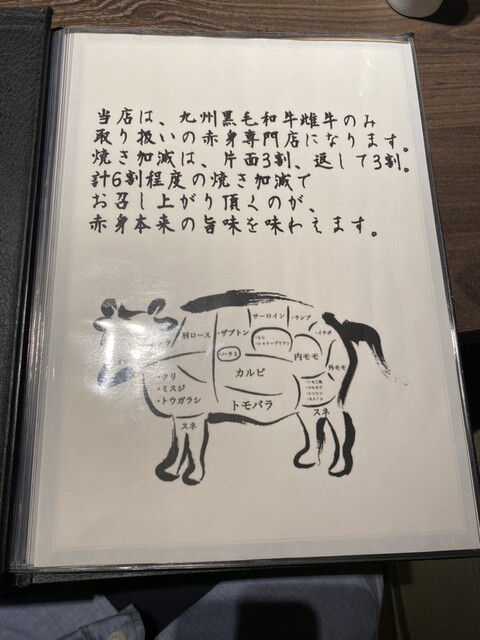 当店は、九州黒毛和牛雌牛のみ
取り扱いの赤身専門店になります。
焼き加減は、片面3割、返して3割。
計6割程度の焼き加減で
お召し上がり頂くのが、
赤身本来の旨味を味わえます。
肩ロース
・ザブトン
サーロイン
・ランプ
・イチボ
・ヒレ
・シャトーブリアン
・ハラミ
内モモ
外モモ
カルビ
・クリ
・ミスジ
・トウガラシ
トモバラ
スネ
スネ